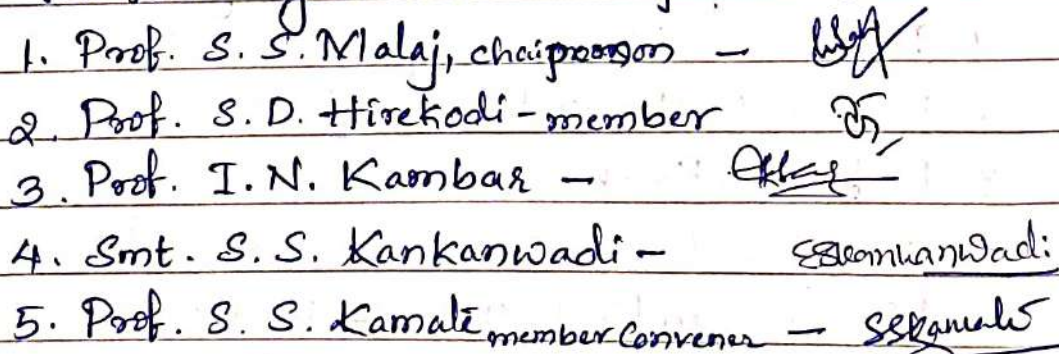 1. Prof. S. S. Malaj, chairperson -
2. Prof. S. D. Hirekodi - member
3. Prof. I. N. Kambar -
4. Smt. S. S. Kankanwadi - SSKankanwadi
5. Prof. S. S. Kamate member Convener - SSKamate